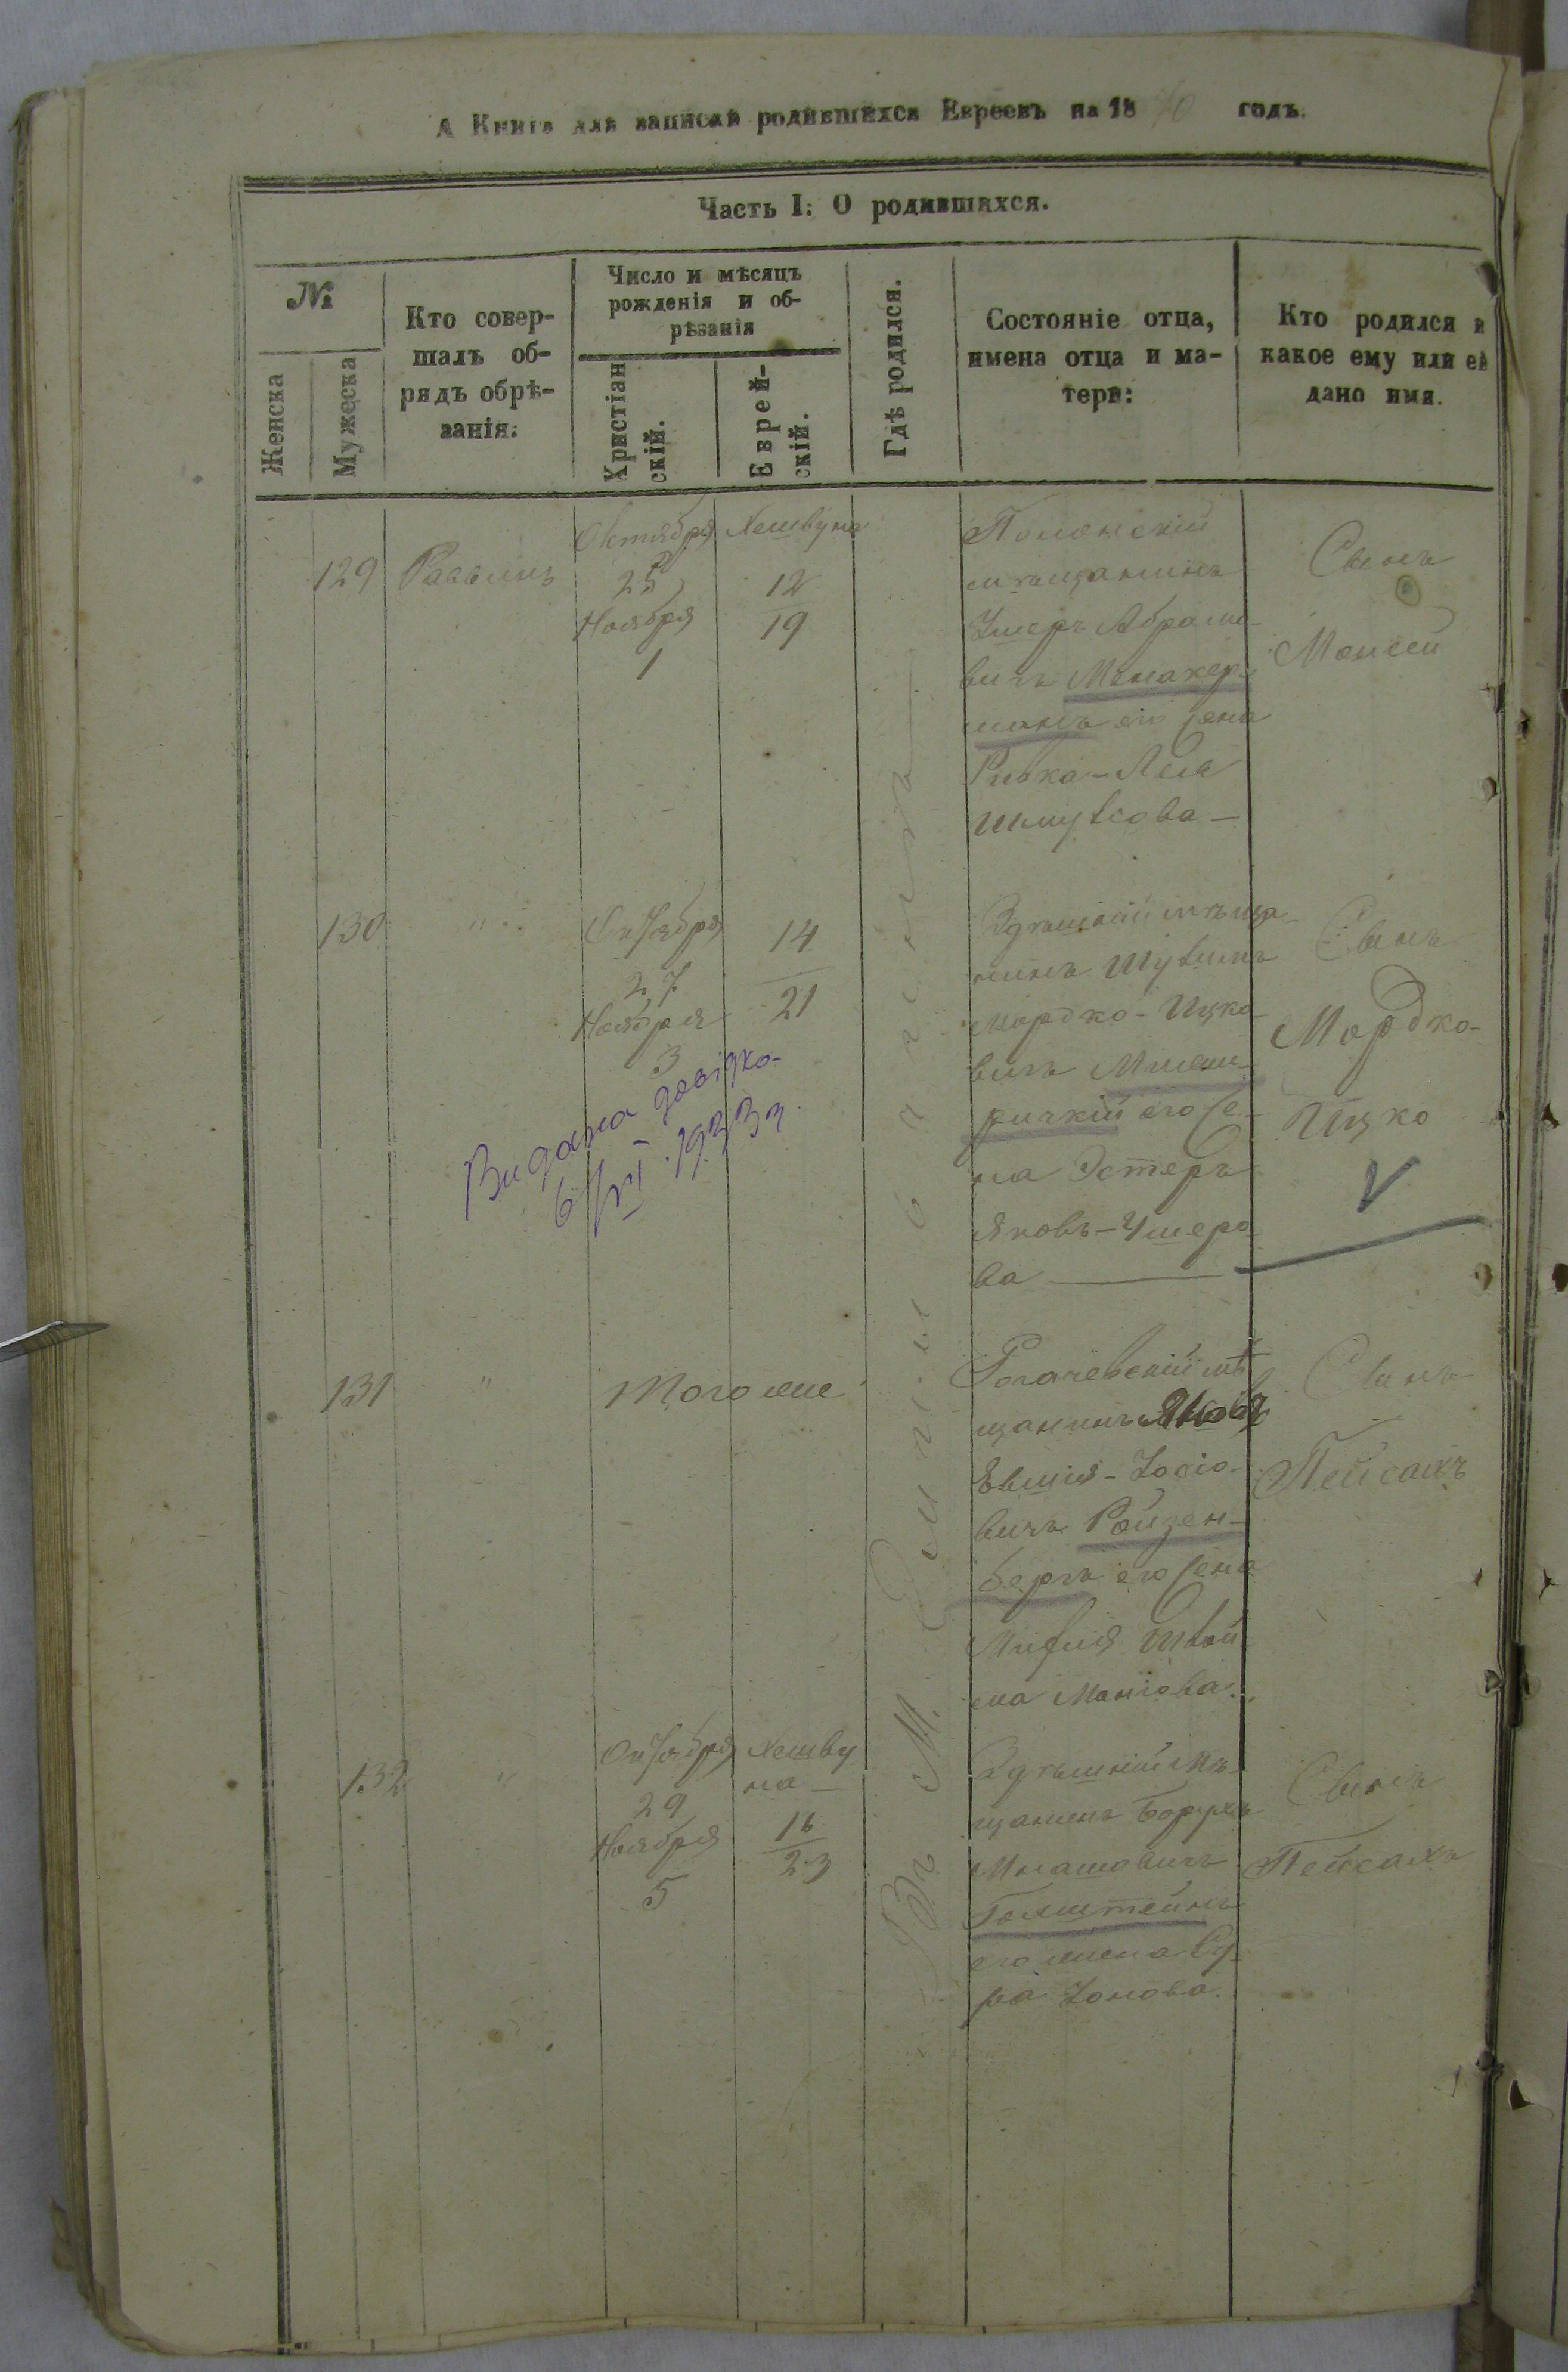 А Книга для записки родившихся Евреевъ на 1870 годъ.
Часть I: О родившихся.
№
Женска
Мужеска
Кто совер-
шалъ об-
рядъ обрѣ-
занія:
Число и мѣсяцъ
рожденія и об-
рѣзанія
Христіан
скій.
Еврей-
скій.
Гдѣ родился.
Состояніе отца,
имена отца и ма-
тери:
Кто родился и
какое ему или ей
дано имя.
129
Раввинъ
Октября
25
Ноября
1
Хешвуна
12
19
мѣщанинъ
Умеръ Абрамо-
вичъ Монакер-
манъ его жена
Ривка-Леа
Шмулiова-
Сынъ
Моисей
130
"
Октября
27
Ноября
3
14
21
Здѣшній мѣща-
нинъ Шулимъ
Мордко-Ицко-
вичъ
его же-
на Эстеръ
Яковъ-Умеро
ва
Сынъ
Мордко-
Ицко
Видана довідка
6/VI. 1933 р.
131
"
Того же
Рогачевскій мѣ
щанинъ Яковъ
Евшія-Іосіо-
вичъ Ройзен-
бергъ его жена
Маніова.
Сынъ
Пейсахъ
132
"
Октября
29
Ноября
5
Хешву
на
16
23
Здѣшній мѣ-
щанинъ Борухъ
Мнашовичъ
Гольштейнъ
его жена Су-
ра Іонова.
Сынъ
Пейсахъ
Въ М.